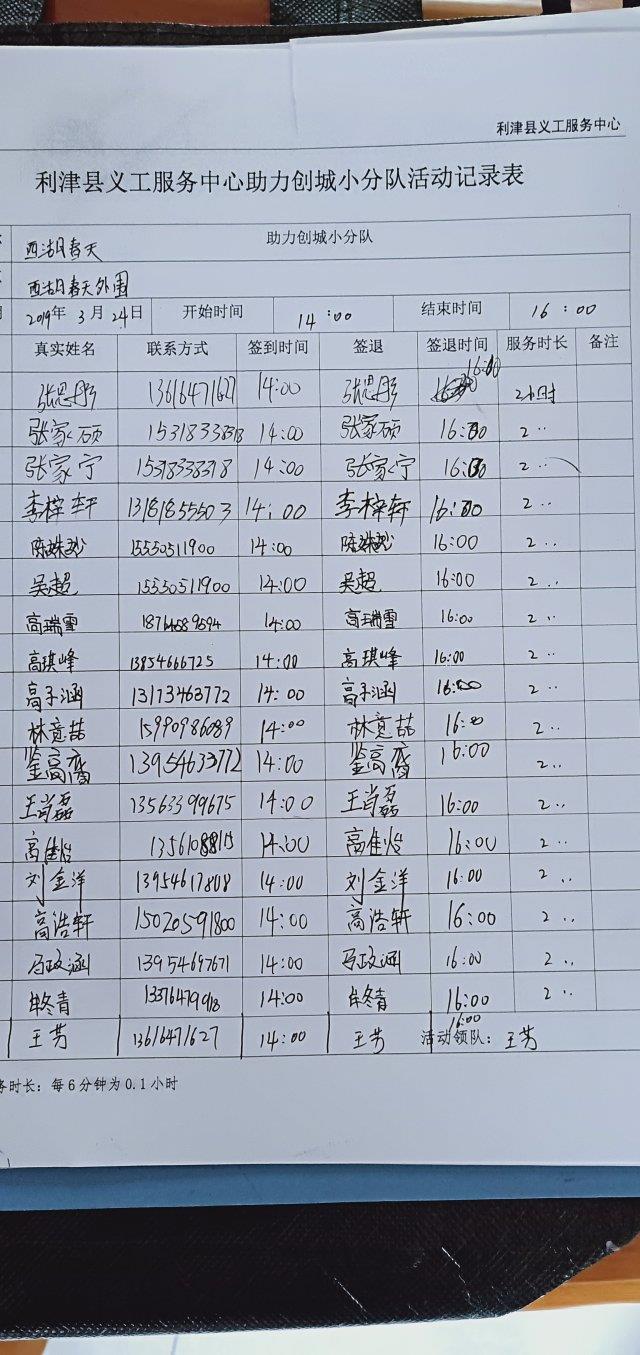 利津县义工服务中心
利津县义工服务中心助力创城小分队活动记录表
西湖春天 助力创城小分队
西湖春天外围
2019年 3月24日 开始时间 14:00 结束时间 16:00
真实姓名 联系方式 签到时间 签退 签退时间 服务时长 备注
张恩彤 13616471627 14:00 张恩彤 16:00 2小时
张家硕 15318338318 14:00 张家硕 16:00 2··
张家宁 15318338318 14:00 张家宁 16:00 2··
李梓轩 13181855503 14:00 李梓轩 16:00 2··
15550511900 14:00 16:00 2··
吴超 15550511900 14:00 吴超 16:00 2··
高瑞雪 14:00 高瑞雪 16:00 2··
高琪峰 13854666725 14:00 高琪峰 16:00 2··
高子涵 13173463772 14:00 高子涵 16:00 2··
林意喆 15990986089 14:00 林意喆 16:00 2··
13954633772 14:00 16:00 2··
王肖磊 13563399675 14:00 王肖磊 16:00 2··
高佳怡 14:00 高佳怡 16:00 2··
刘金洋 13954617808 14:00 刘金洋 16:00 2··
高浩轩 15020591800 14:00 高浩轩 16:00 2··
马政涵 13954697671 14:00 马政涵 16:00 2··
牟冬青 14:00 牟冬青 16:00 2··
王芳 13616471627 14:00 王芳 16:00 活动领队：王芳
务时长：每6分钟为0.1小时